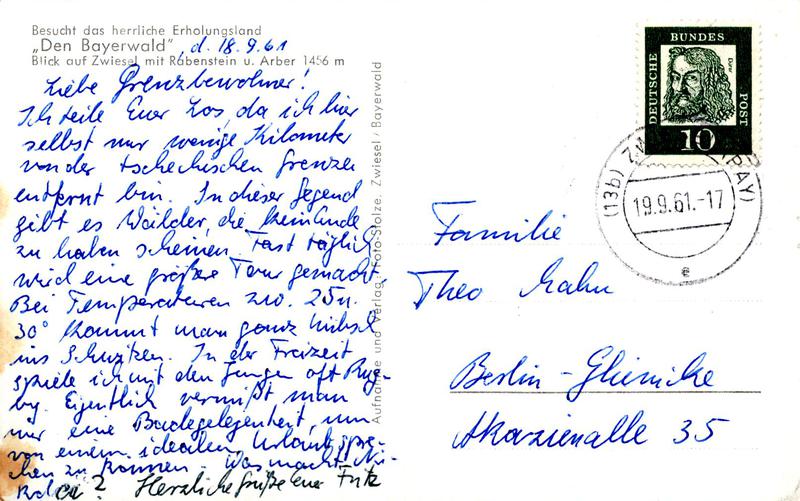 Besucht das herrliche Erholungsland
„Den Bayerwald" , d. 18.9.61
Blick auf Zwiesel mit Rabenstein u. Arber 1456 m
Liebe Grenzbewohner!
Ich teile Euer Los, da ich hier
selbst nur wenige Kilometer
von der tschechischen Grenze
entfernt bin. In dieser Gegend
gibt es Wälder, die kein Ende
zu haben scheinen. Fast täglich
wird eine größere Tour gemacht.
Bei Temperaturen zw. 25 u.
30° kommt man ganz hübsch
ins Schwitzen. In der Freizeit
spiele ich mit den Jungen oft Rug-
by. Eigentlich vermißt man
nur eine Badegelegenheit, um
von einem idealen Urlaub spre-
chen zu können. Was macht
Herzliche Grüße Euer Fritz
Aufnahme und Verlag: Foto-Stolze, Zwiesel / Bayerwald
DEUTSCHE BUNDES POST
Dürer
10
(13b) ZW (BAY)
19.9.61.-17
e
Familie
Theo Hahn
Berlin-Glienicke
Akazienallee 35